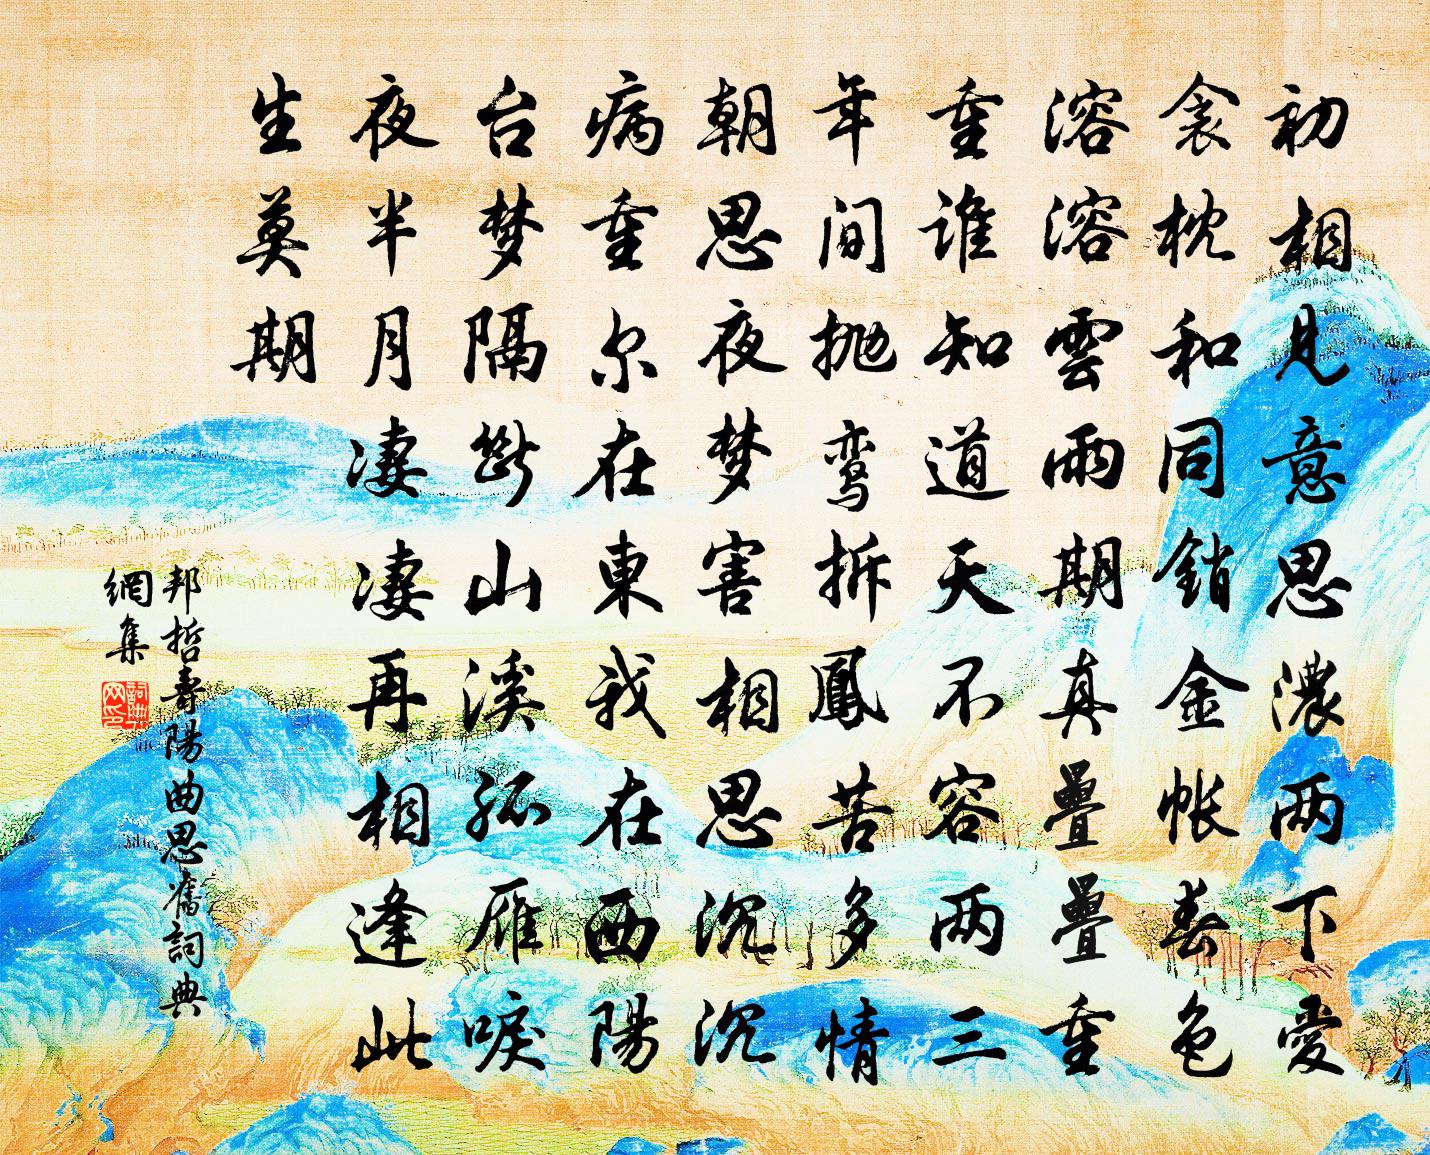 初相見意思濃两下愛
衾枕和同銷金帐春色
溶溶雲雨期真疊疊重
重谁知道天不容两三
年间抛鸾拆鳳苦多情
朝思夜梦害相思沉沉
病重尔在東我在西陽
台梦隔斷山溪孤雁唳
夜半月凄凄再相逢此
生莫期
邦哲壽陽曲思舊詞典
網集
詞典網印